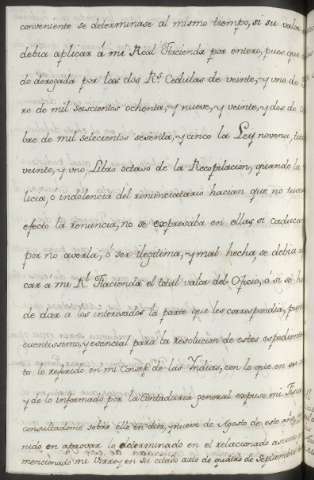 conveniente se determinase al mismo tiempo, si su valor
debia aplicar á mi Real Hacienda por entero, pues que
derogada por las dos Rs. Cedulas de veinte, y uno de
re de mil seiscientos ochenta, y nueve, y veinte, y dos de
bre de mil setecientos sesenta, y cinco la Ley novena,
veinte, y uno, Libro octavo de la Recopilacion, quando la
licia, o indolencia del renunciatario hacian que no
efecto la renuncia, no se expresaba en ellas si caducaba
por no averla, ó ser ilegitima, y mal hecha se debia
car a mi Rl. Hacienda el total valor del Oficio, ó si se
de dar a los interesados la parte que les correspondia,
cuentissimo, y esencial para la resolucion de estos expedientes
to lo referido en mi Consejo de las Indias, con lo que en su
y de lo informado por la Contaduria general expuso mi Fiscal
consultadome sobre ello en diez, y nueve de Agosto de este año,
nido en aprovar lo determinado en el relacionado
mencionado mi Virrey en su citado auto de quatro de Septiembre